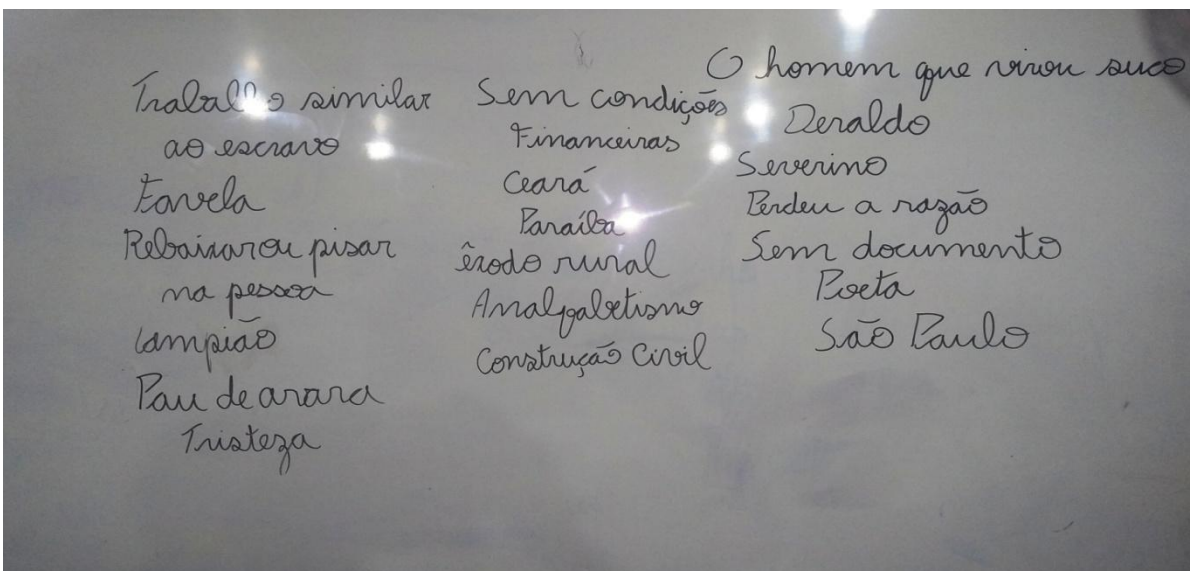 Trabalho similar
ao escravo
Favela
Rebaixar ou pisar
na pessoa
Lampião
Pau de arara
Tristeza
Sem condições
Financeiras
Ceará
Paraíba
êxodo rural
Analfabetismo
Construção Civil
O homem que virou suco
Deraldo
Severino
Perdeu a razão
Sem documento
Poeta
São Paulo